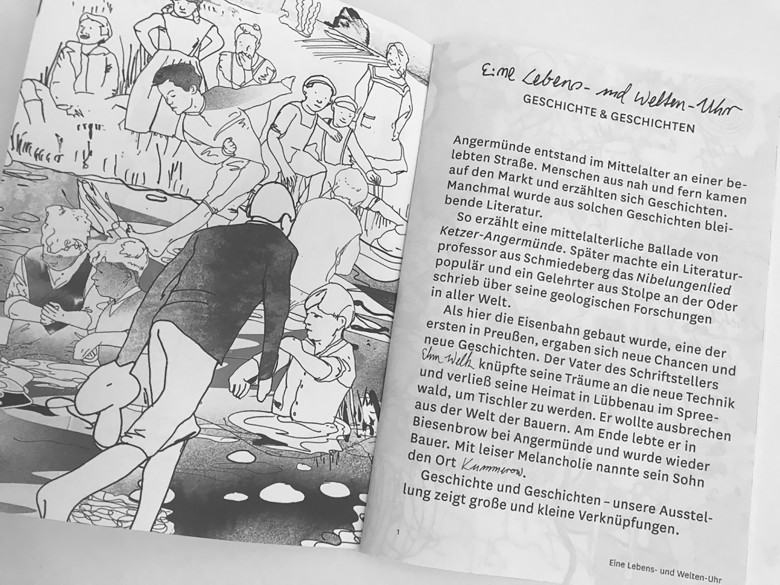 Eine Lebens- und Welten-Uhr
GESCHICHTE & GESCHICHTEN
Angermünde entstand im Mittelalter an einer be-
lebten Straße. Menschen aus nah und fern kamen
auf den Markt und erzählten sich Geschichten.
Manchmal wurde aus solchen Geschichten blei-
bende Literatur.
So erzählt eine mittelalterliche Ballade von
Ketzer-Angermünde. Später machte ein Literatur-
professor aus Schmiedeberg das Nibelungenlied
populär und ein Gelehrter aus Stolpe an der Oder
schrieb über seine geologischen Forschungen
in aller Welt.
Als hier die Eisenbahn gebaut wurde, eine der
ersten in Preußen, ergaben sich neue Chancen und
neue Geschichten. Der Vater des Schriftstellers
Ehm Welk knüpfte seine Träume an die neue Technik
und verließ seine Heimat in Lübbenau im Spree-
wald, um Tischler zu werden. Er wollte ausbrechen
aus der Welt der Bauern. Am Ende lebte er in
Biesenbrow bei Angermünde und wurde wieder
Bauer. Mit leiser Melancholie nannte sein Sohn
den Ort Kummerow.
Geschichte und Geschichten – unsere Ausstel-
lung zeigt große und kleine Verknüpfungen.
1
Eine Lebens- und Welten-Uhr